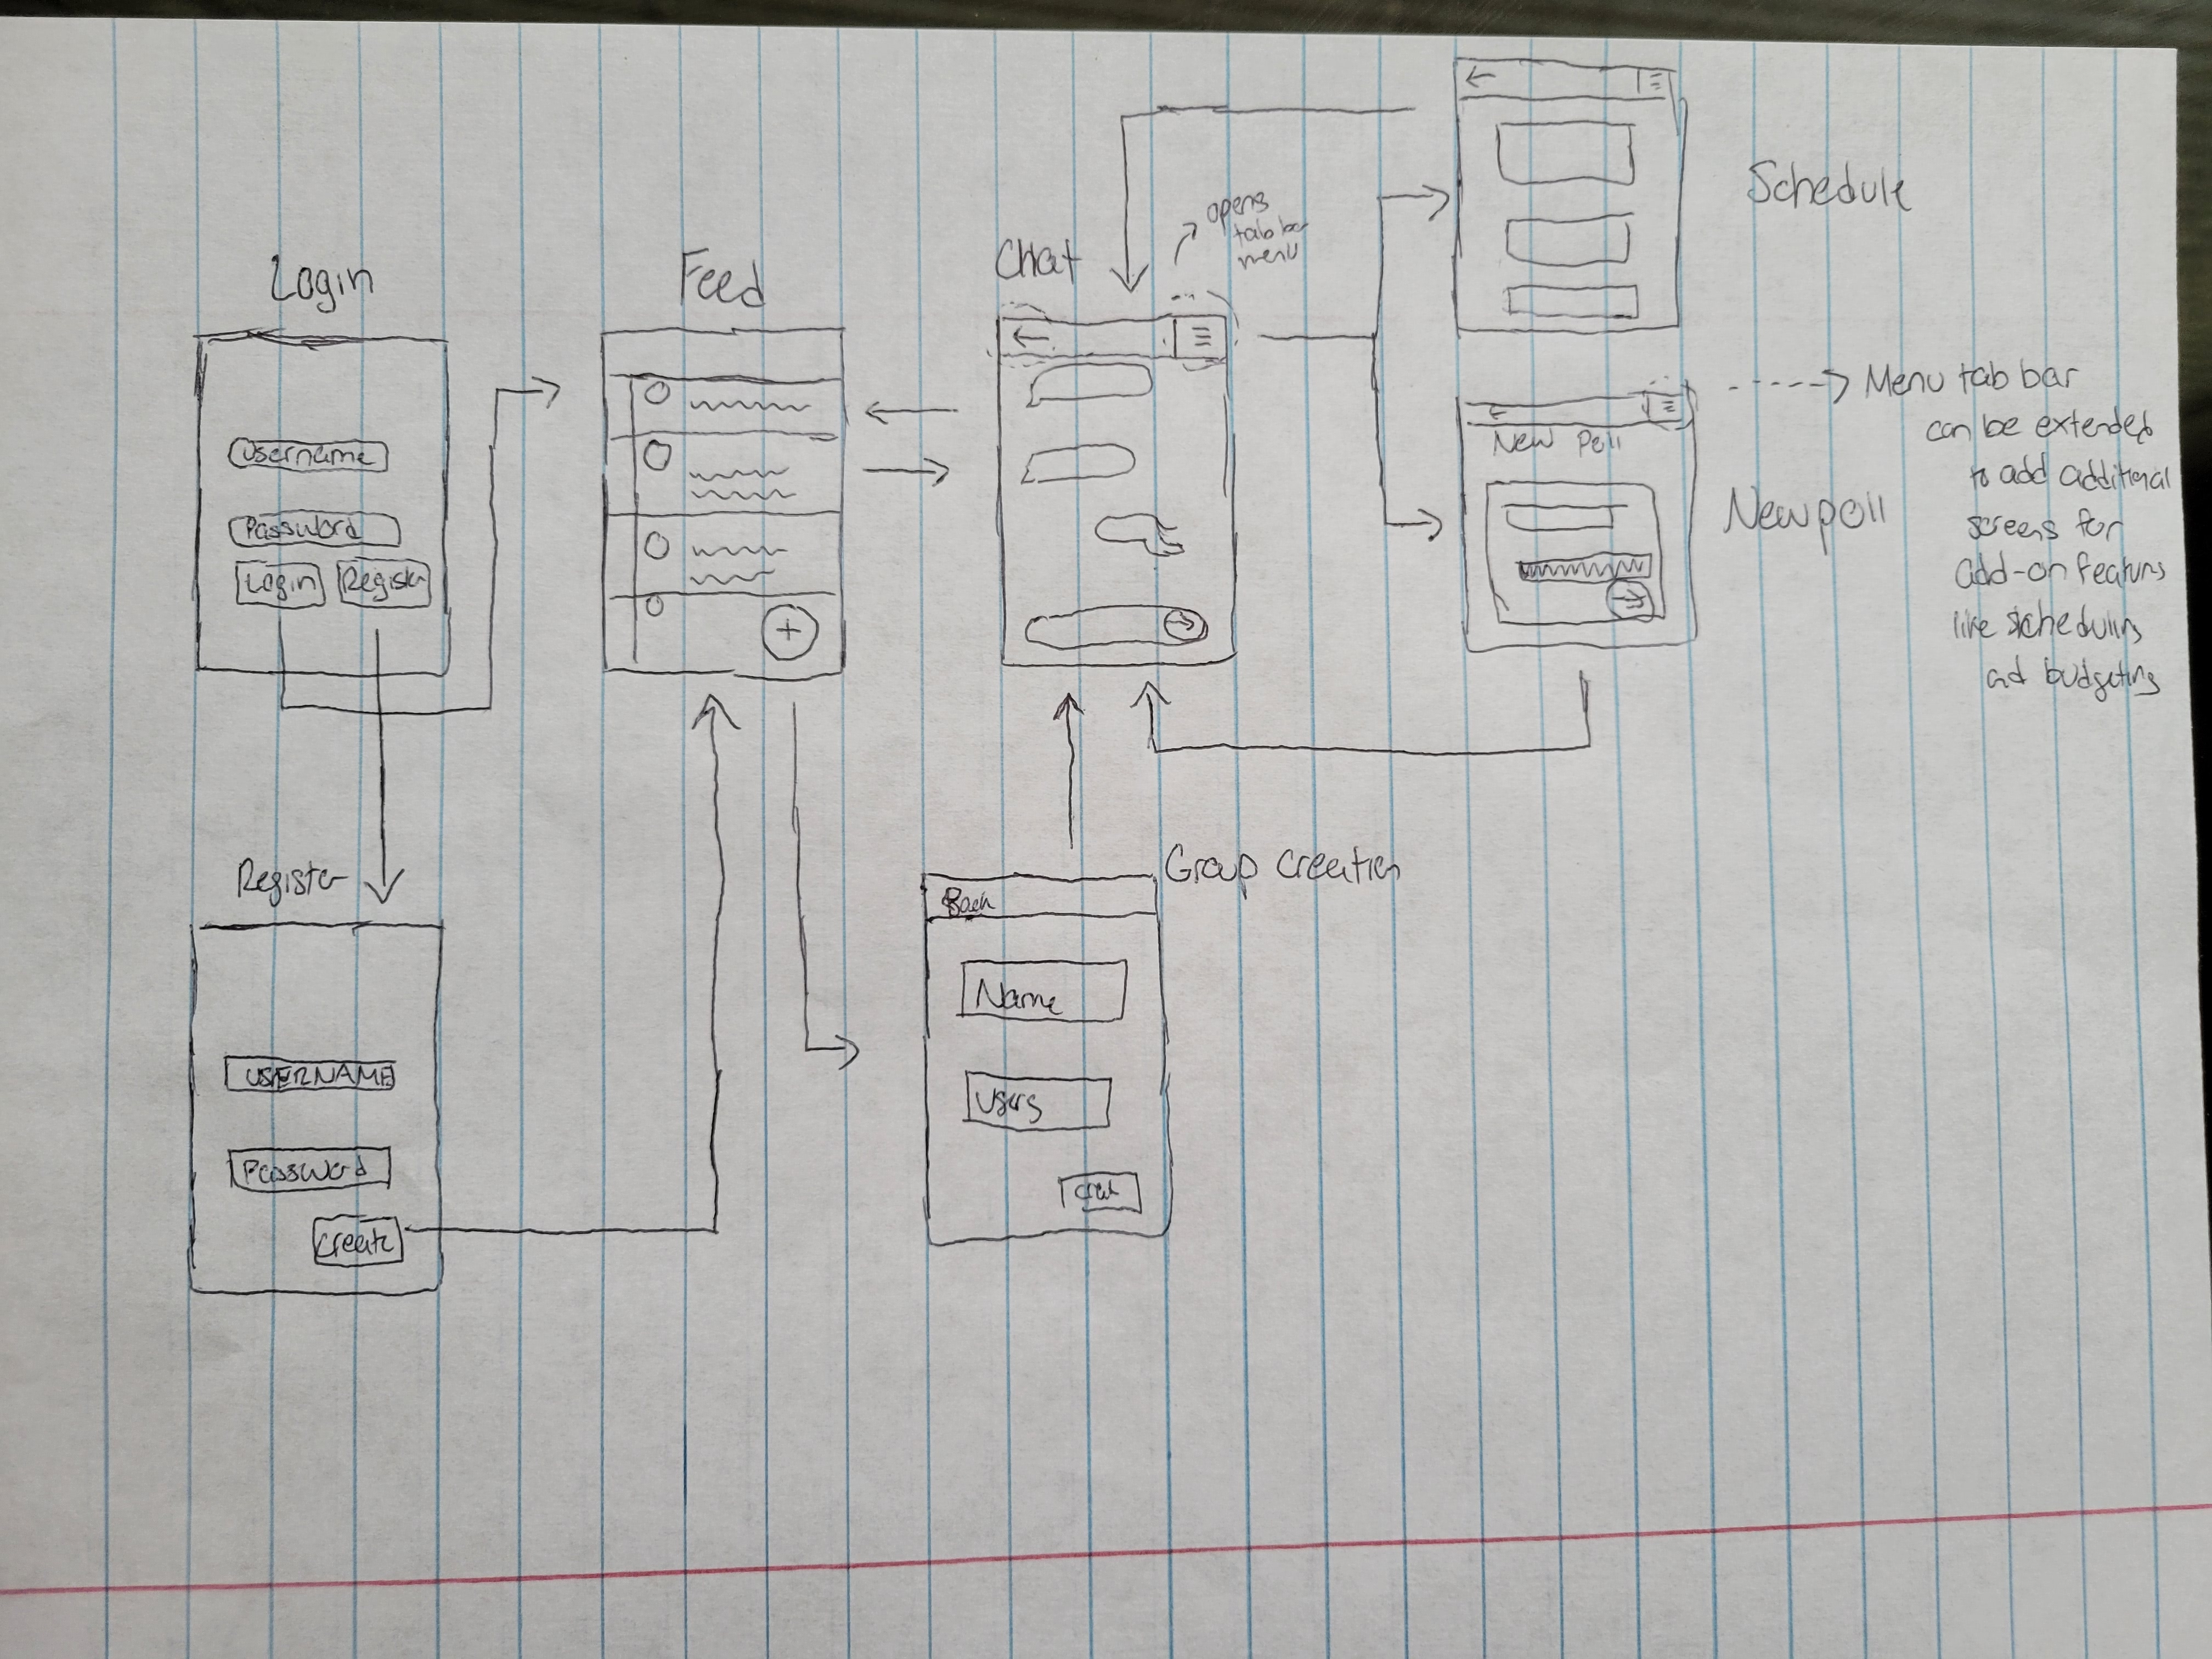 Login
Username
Password
Login Register
Register
USERNAME
Password
Create
Feed
+
Chat
opens
tab bar
menu
Back
Name
Users
Group Creation
Schedule
New Poll
New poll
Menu tab bar
can be extended
to add additional
screens for
add-on features
like scheduling
and budgeting